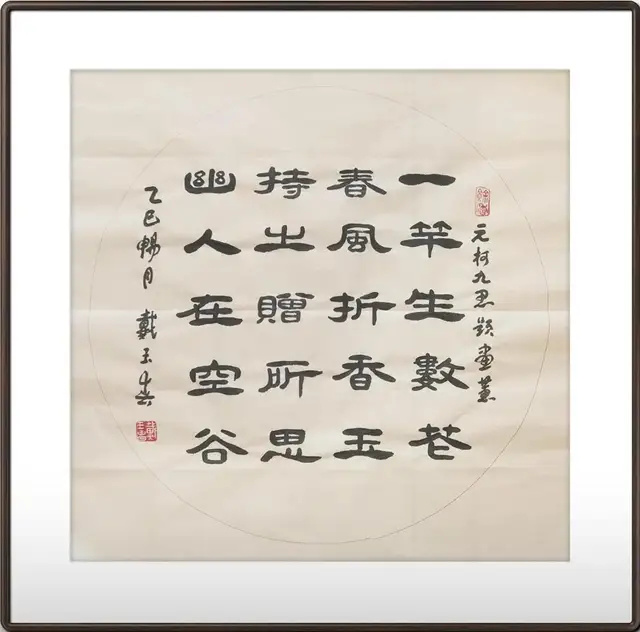 元柯九思題畫蕙
一竿生數花
春風折香玉
持之贈所思
幽人在空谷
乙巳暢月 戴玉春